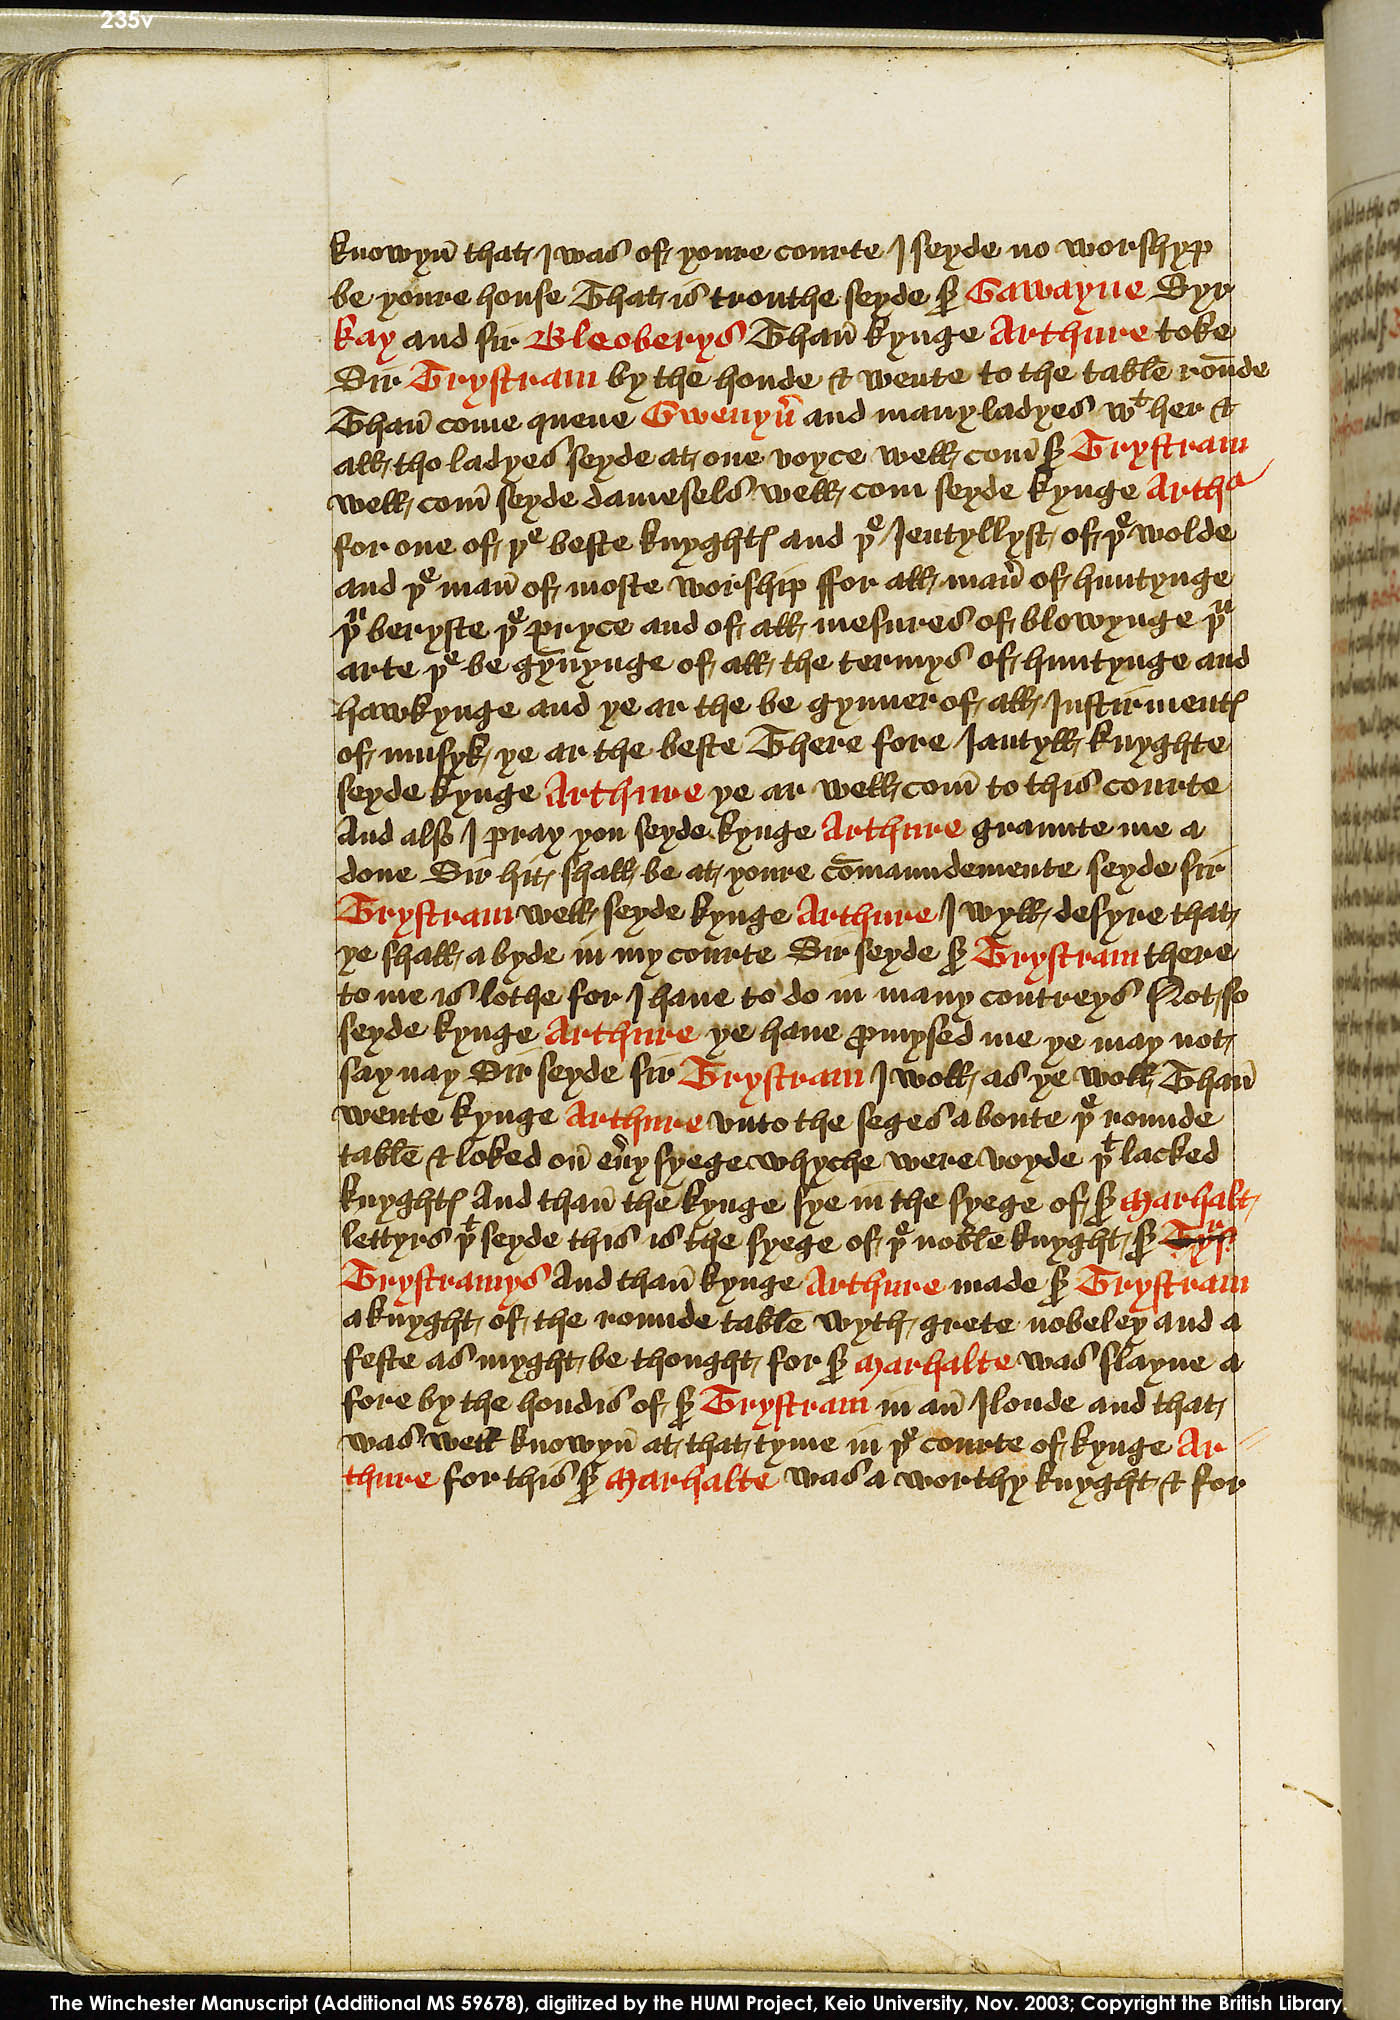 235v
knowyn̄ that I was of youre courte I seyde no worshyp
be youre house That is trouthe seyde sʳ Gawayne Syr
Kay and sir Bleoberys Than̄ kynge Arthure toke
Sir Trystram by the honde & wente to the table roūde
Than̄ come quene Gwenyu̅ and many ladyes wᵗ her &
all tho ladyes seyde at one voyce well com̄ sʳ Trystram
well com̄ seyde damesels well com seyde kynge Arthᵃ
for one of þᵉ beste knyghtꝭ and þᵉ Jentyllyst of þᵉ wolde
and þᵉ man̄ of moste worship ffor all man̄ of huntynge
þᵘ beryste þᵉ pryce and of all mesures of blowynge þᵘ
arte þᵉ be gȳnynge of all the termys of huntynge and
hawkynge and ye ar the be gynner of all Instirmentꝭ
of musyk ye ar the beste There fore Jantyll knyghte
seyde kynge Arthure ye ar well com̄ to this courte
And also I pray you seyde kynge Arthure graunte me a
done Sir hit shall be at youre cōmaundemente seyde sir
Trystram well seyde kynge Arthure I wyll desyre that
ye shall a byde in my courte Sir seyde sʳ Trystram there
to me is lothe for I haue to do in many contreys Not so
seyde kynge Arthure ye haue ꝓmysed me ye may not
say nay Sir seyde sir Trystram I woll as ye woll Than̄
wente kynge Arthure vnto the seges aboute þᵉ rounde
table & loked on̄ eu̅y syege whyche were voyde þᵗ lacked
knyghtꝭ And than̄ the kynge sye in the syege of sʳ Marhalt
lettyrs þᵗ seyde this is the syege of þᵉ noble knyght sʳ Tʳys
Trystramys And than̄ kynge Arthure made sʳ Trystram
a knyght of the rounde table wyth grete nobeley and a
feste as myght be thought for sʳ Marhalte was slayne a
fore by the hondis of sʳ Trystram in an̄ Ilonde and that
was well knowyn̄ at that tyme in þᵉ courte of kynge Ar
thure for this sʳ Marhalte was a worthy knyght & for
The Winchester Manuscript (Additional MS 59678), digitized by the HUMI Project, Keio University, Nov. 2003; Copyright the British Library.